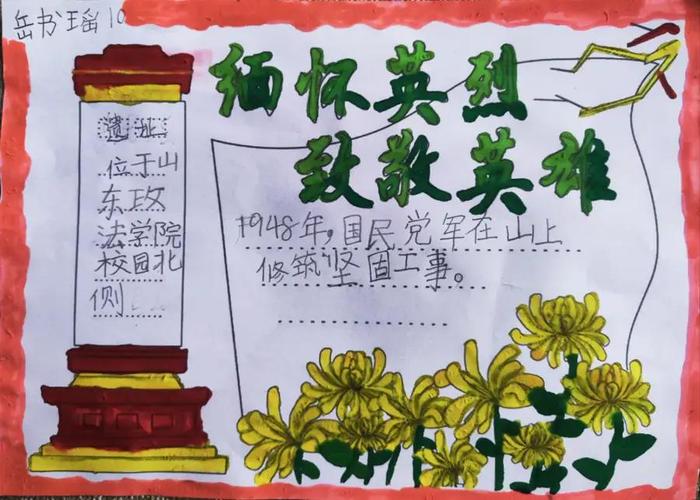 岳书瑶10
缅怀英烈
致敬英雄
遗址
位于山
东政
法学院
校园北
侧
1948年,国民党军在山上
修筑坚固工事。